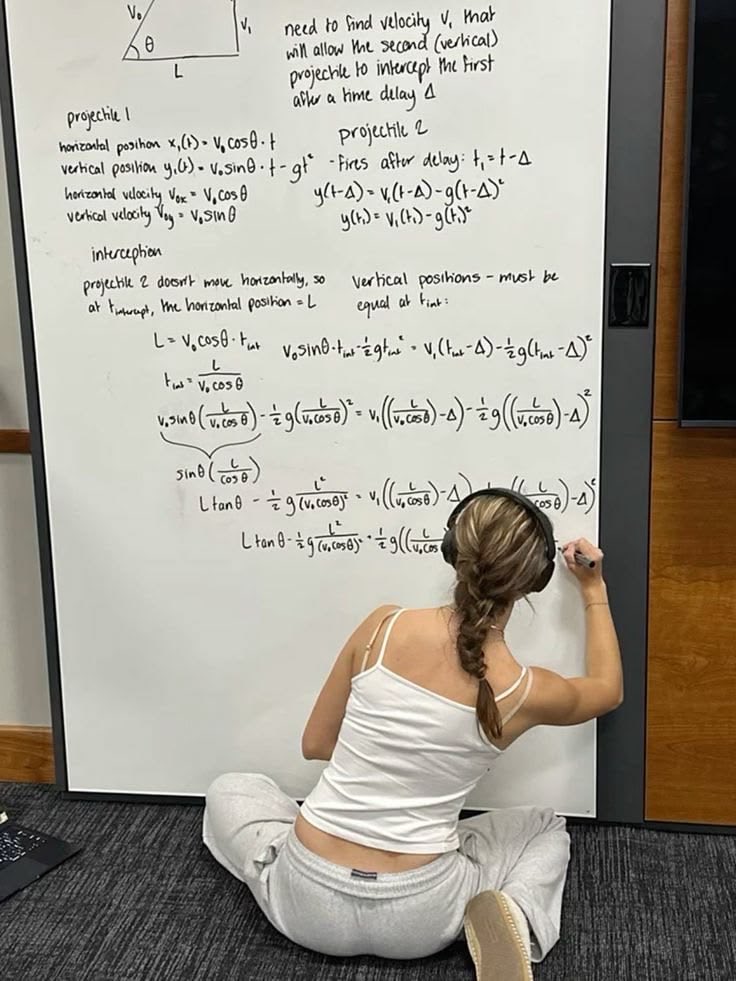 V₀
V₁
θ
L
need to find velocity V₁ that
will allow the second (vertical)
projectile to intercept the first
after a time delay Δ
projectile 1
horizontal position x₁(t) = V₀ cosθ · t
vertical position y₁(t) = V₀ sinθ · t - gt²
horizontal velocity V₀ₓ = V₀ cosθ
vertical velocity V₀y = V₀ sinθ
projectile 2
- fires after delay: t₁ = t - Δ
y(t-Δ) = V₁(t-Δ) - g(t-Δ)²
y(t₁) = V₁(t₁) - g(t₁)²
interception
projectile 2 doesn't move horizontally, so
at t_intercept, the horizontal position = L
L = V₀ cosθ · t_int
t_int = L/(V₀ cosθ)
vertical positions - must be
equal at t_int:
V₀ sinθ · t_int - ½gt_int² = V₁(t_int - Δ) - ½g(t_int - Δ)²
V₀ sinθ(L/(V₀ cosθ)) - ½g(L/(V₀ cosθ))² = V₁((L/(V₀ cosθ)) - Δ) - ½g((L/(V₀ cosθ)) - Δ)²
sinθ(L/(cosθ))
L tanθ - ½g L²/(V₀ cosθ)² = V₁((L/(V₀ cosθ)) - Δ) ((L/ cosθ) - Δ)²
L tanθ - ½g L²/(V₀ cosθ)² + ½g((L/(V₀ cos